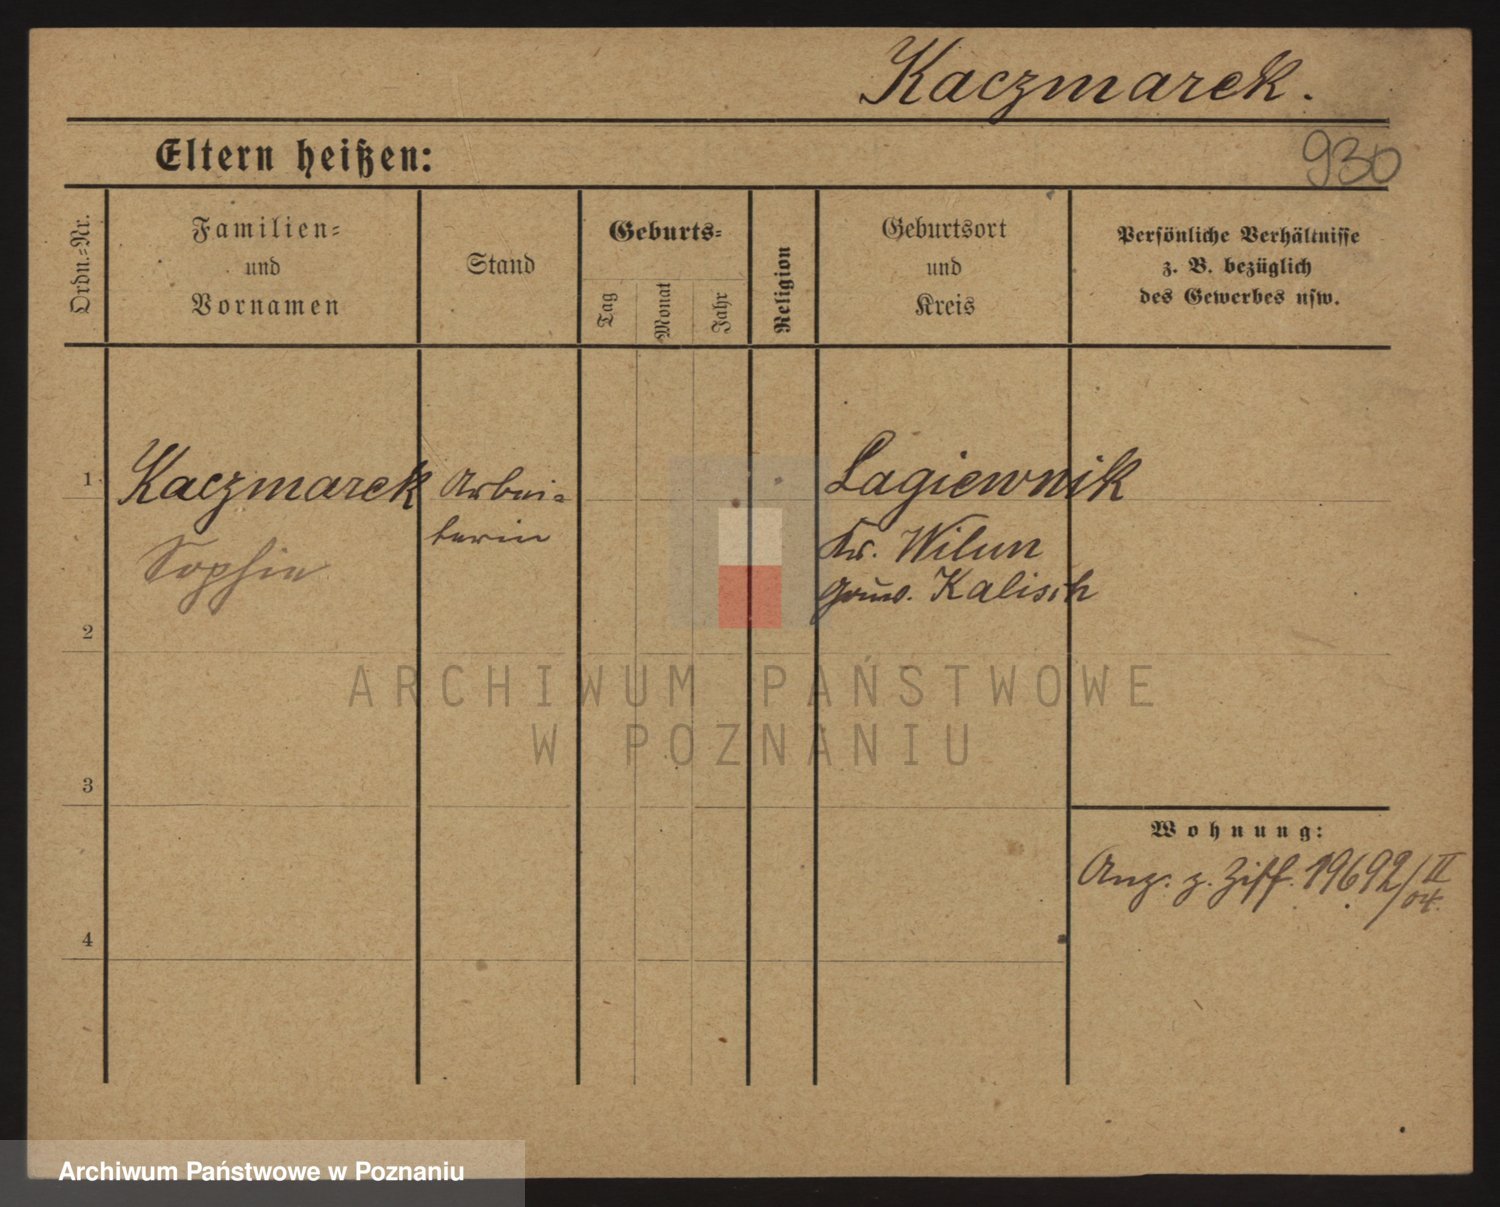 Kaczmarek.
930
Eltern heißen:
Ordn.-Nr.
Familien-
und
Vornamen
Stand
Geburts-
Tag
Monat
Jahr
Religion
Geburtsort
und
Kreis
Persönliche Verhältnisse
z. B. bezüglich
des Gewerbes usw.
1
Kaczmarek
Sophie
Arbei-
terin
Lagiewnik
Kr. Wilun
Gouv. Kalisch
2
3
4
Wohnung:
Anz. z. Ziff. 19692/II
ARCHIWUM PAŃSTWOWE
W POZNANIU
Archiwum Państwowe w Poznaniu